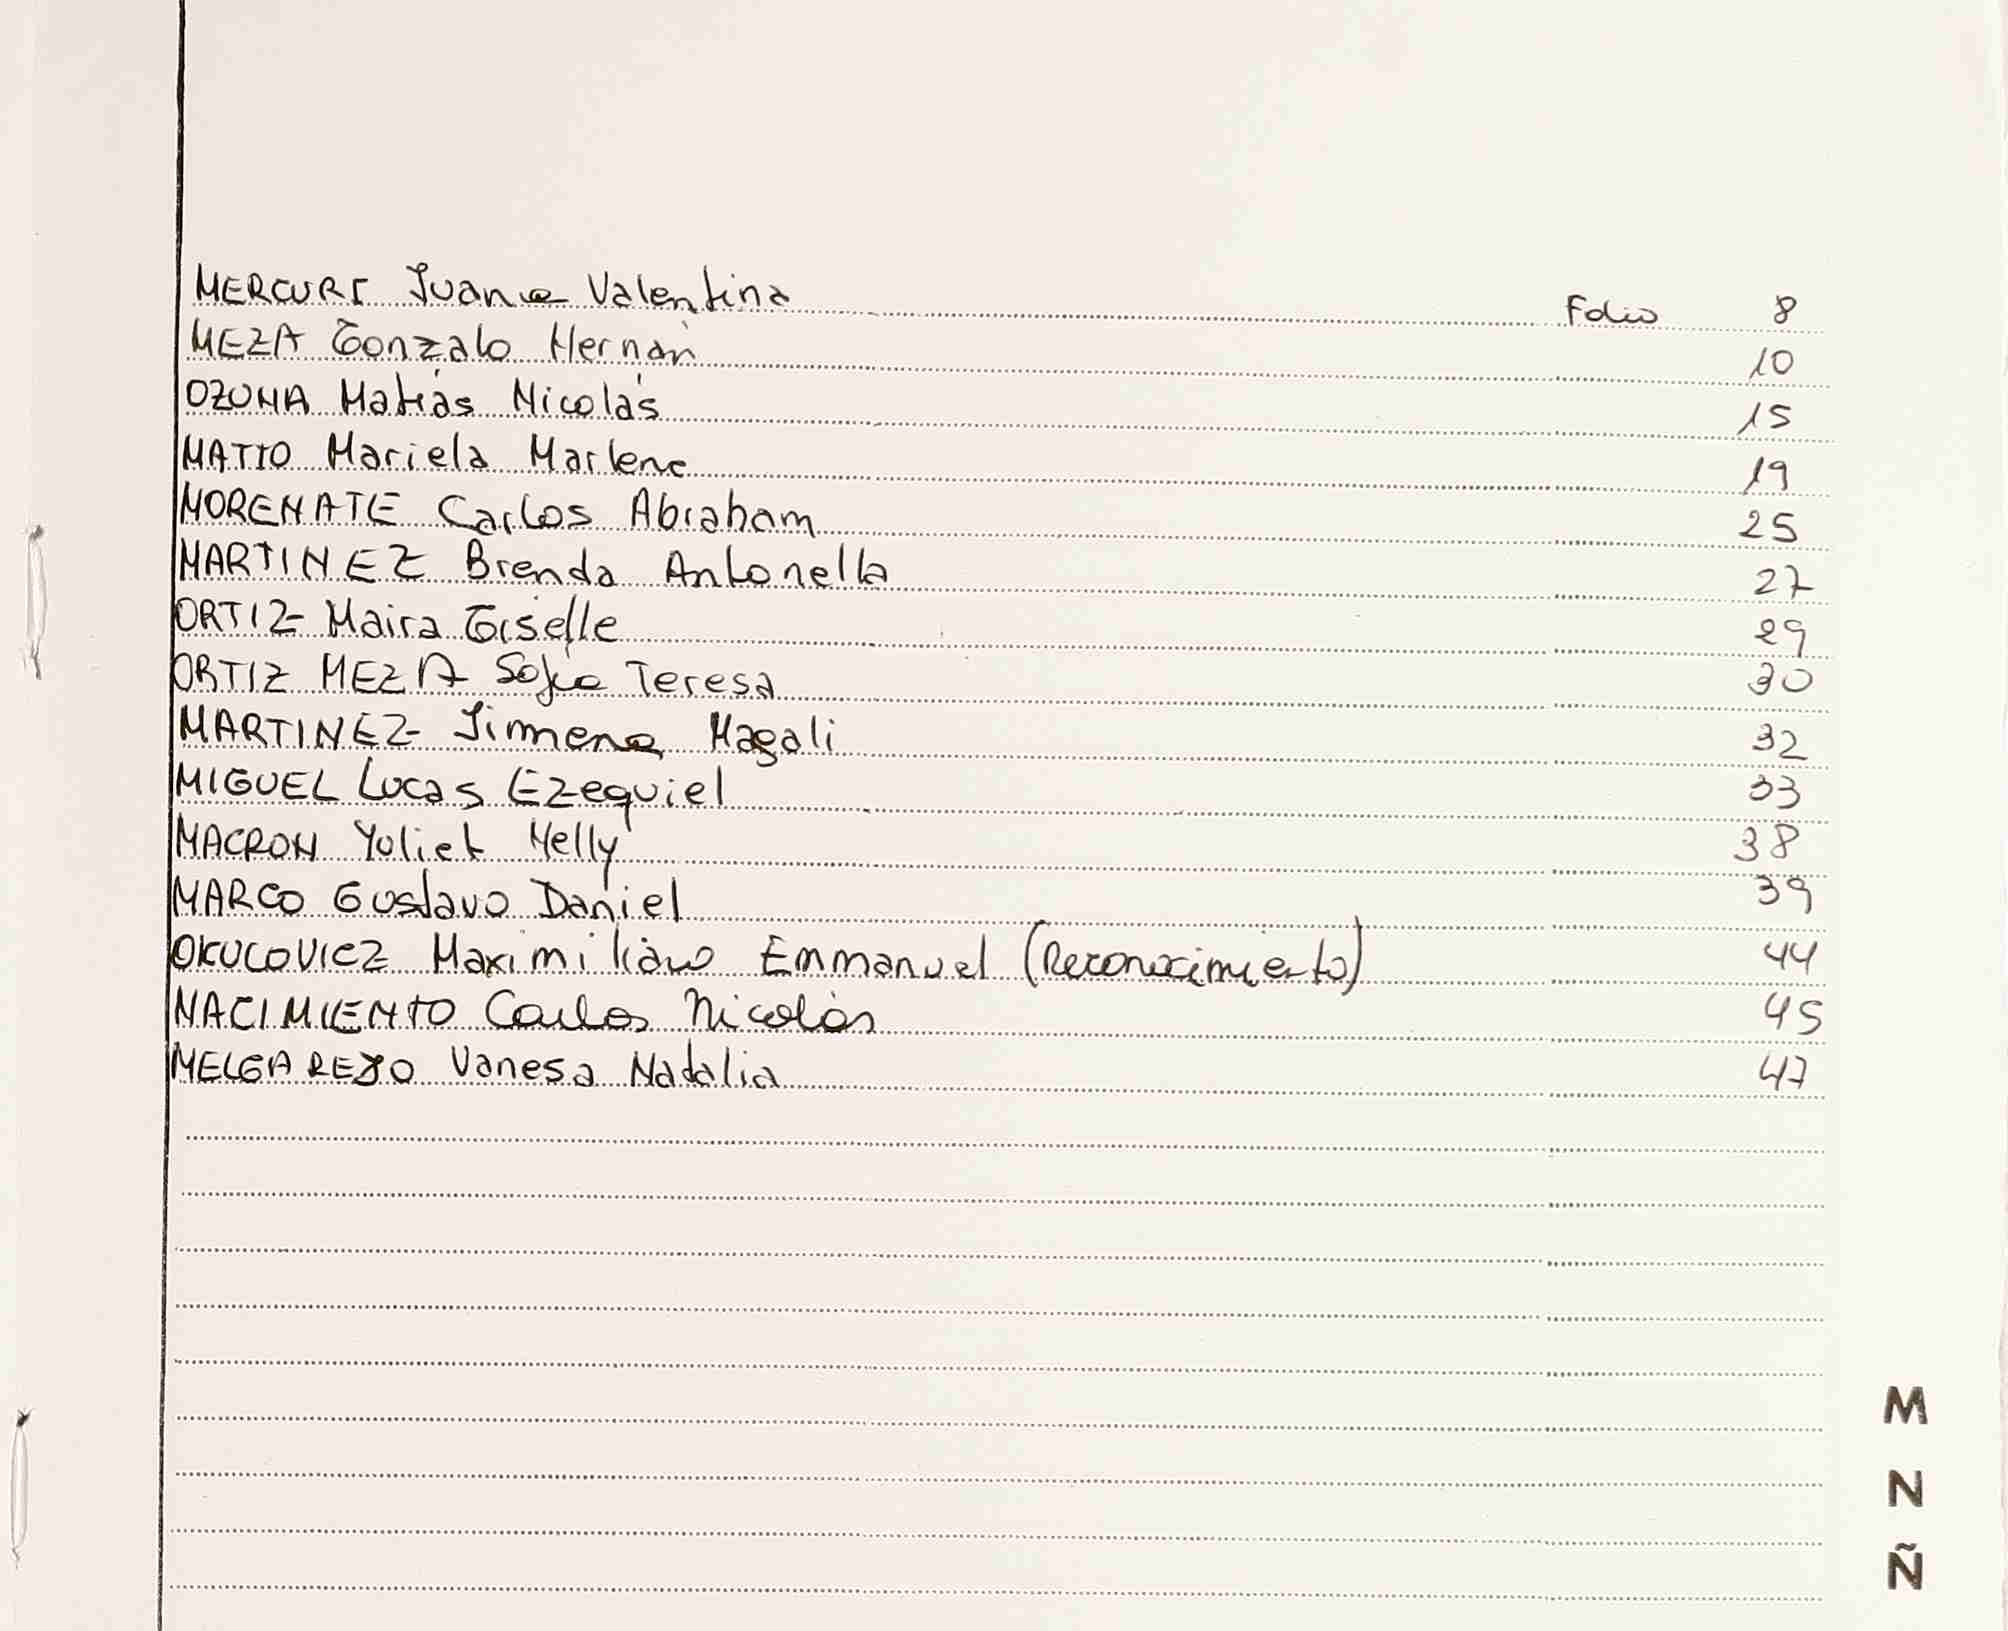 MERCURI Juana Valentina Folio 8
MEZA Gonzalo Hernán 10
OZUNA Matías Nicolás 15
MATTO Mariela Marlene 19
MORENATE Carlos Abraham 25
MARTINEZ Brenda Antonella 27
ORTIZ Maira Giselle 29
ORTIZ MEZA Sofia Teresa 30
MARTINEZ Jimena Magali 32
MIGUEL Lucas Ezequiel 33
MACRON Yuliet Nelly 38
MARCO Gustavo Daniel 39
OKUCOVICZ Maximiliano Emmanuel (Reconocimiento) 44
NACIMIENTO Carlos Nicolás 45
MELGAREJO Vanesa Natalia 47
M
N
Ñ